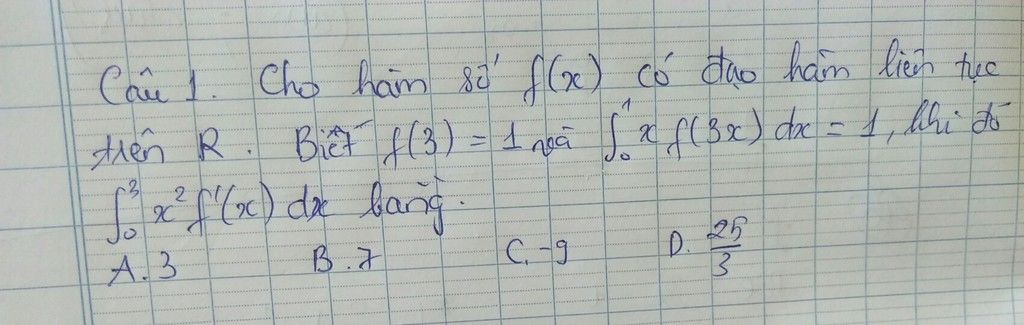 Câu 1. Cho hàm số f(x) có đạo hàm liên tục
trên R. Biết f(3) = 1 và ∫₀¹ x f(3x) dx = 1, khi đó
∫₀³ x² f'(x) dx bằng.
A. 3 B. 7 C. -9 D. 25/3